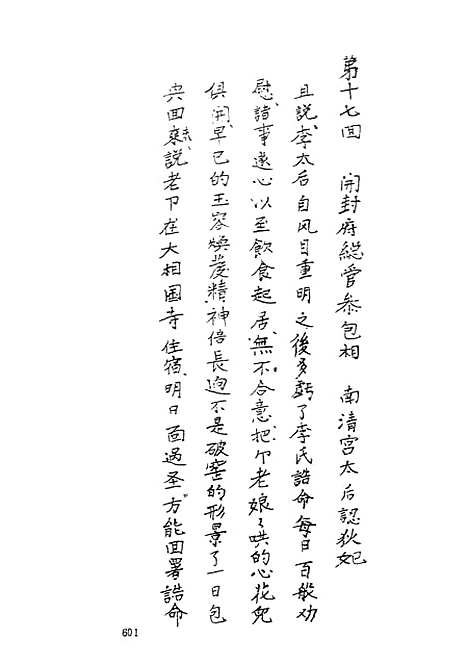 第十七回　開封府總管參包相　南清宫太后認狄妃
且説、李太后自风目重明之後多虧了李氏誥命每日百般劝
慰、諸事遂心以至飲食起居、無不合意、把个老娘々哄的心花兒
俱開、早已的玉容焕发、精神倍長逈不是破窑的形景了一日包
兴回来、説、老下在大相国寺住宿、明日面过圣、方能回署誥命
601